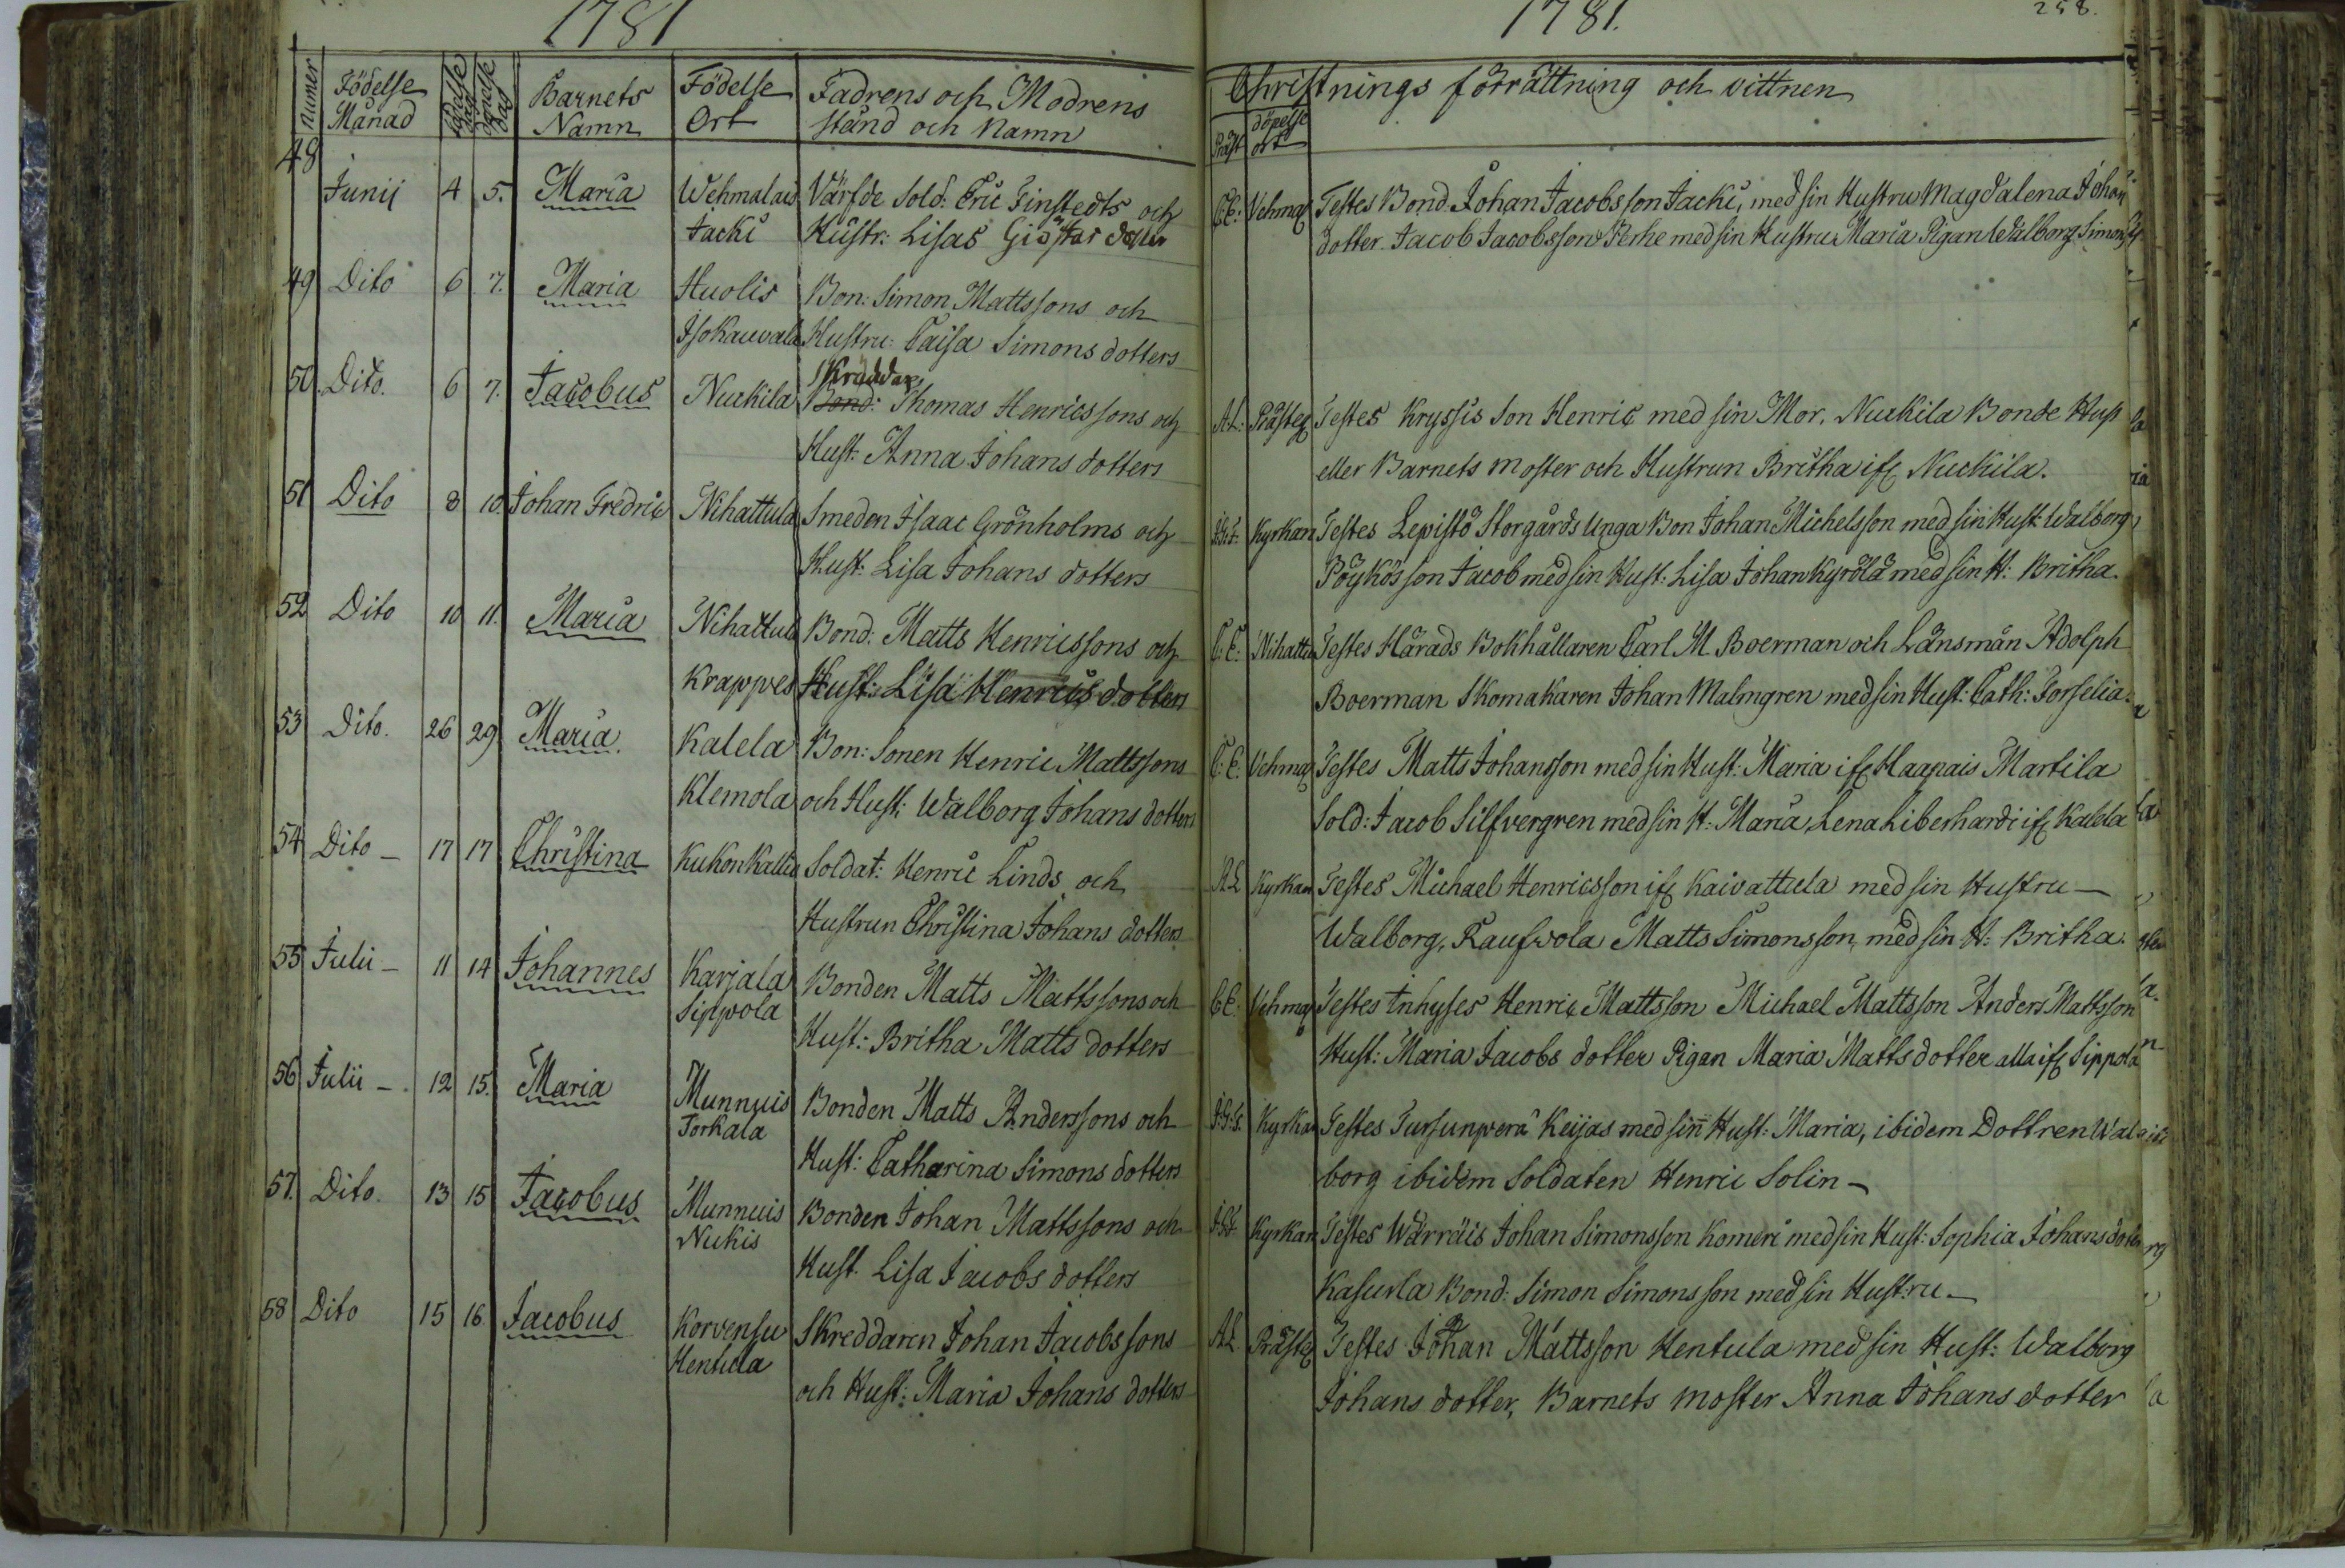 1781
Numer
Födelse Månad
Barnets Namn
Födelse Ort
Fadrens och Modrens
stånd och Namn
48 Junii 4 5. Maria Wehmalais Värfde Sold: Eric Finstedts och
Jacki Hustr: Lisas Giöstas dotter
49 Dito 6 7. Maria Huolis Bon: Simon Mattssons och
Isokauvala Hustru: Caisa Simons dotters
Skräddar
50. Dito. 6 7. Jacobus Nuckila Bond: Thomas Henricssons och
Hust: Anna Johans dotters
51 Dito 8 10. Johan Fredric Nihattula Smeden Isaac Grönholms och
Hust: Lisa Johans dotters
52 Dito 10 11. Maria Nihattula Bond: Matts Henricssons och
Krappes Hust: Lisa Henrics dotters
53 Dito. 26 29 Maria. Kalela Bon: Sonen Henric Mattssons
Klemola och Hust: Walborg Johans dotters
54 Dito – 17 17 Christina Kukonkallia Soldat: Henric Linds och
Hustrun Christina Johans dotters
55 Julii – 11 14 Johannes Karjala Bonden Matts Mattssons och
Sippola Hust: Britha Matts dotters
56 Julii – 12 15. Maria Munnuis Bonden Matts Anderssons och
Torkala Hust: Catharina Simons dotters
57. Dito. 13 15 Jacobus Munnuis Bonden Johan Mattssons och
Nukis Hust. Lisa Jacobs dotters
58 Dito 15 16 Jacobus Korvensu Skreddaren Johan Jacobssons
Hentula och Hust: Maria Johans dotters
1781.
258.
Christnings förrättning och vittnen
Präst döpelse ort
C.E: Vehmas Testes Bond. Johan Jacobsson Jacki, med sin Hustru Magdalena Johans
dotter. Jacob Jacobsson Perhe med sin Hustru Maria Pigan Walborg Simons
A.L: Prästeg Testes Kryssis Son Henric med sin Mor, Nuckila Bonde Hust
eller Barnets moster och Hustrun Britha if: Nuckila.
Kyrkan Testes Lepistö Storgårds Unga Bon Johan Michelsson med sin Hust: Walborg
Pöykös son Jacob med sin Hust: Lisa Johan Kyrölä med sin H: Britha.
C: E: Nihattu Testes Härads Bokhållaren Carl M. Boerman och Länsman Adolph
Boerman Skomakaren Johan Malmgren med sin Hust: Cath: Forselia.
C: E: Vehmas Testes Matts Johansson med sin Hust: Maria if: Haapais Martila
Sold: Jacob Silfvergren med sin H: Maria, Lena Liberhardi if: Kalela
A.L Kyrkan Testes Michael Henricsson if: Kaivattula med sin Hustru –
Walborg, Kaufvola Matts Simonsson, med sin H: Britha.
C E: Vehmas Testes Inhyses Henric Mattsson Michael Mattsson Anders Mattsson
Hust: Maria Jacobs dotter Pigan Maria Matts dotter alla if: Sippola
Kyrkan Testes Tursunperä Keijas med sin Hust: Maria, ibidem Dottren Wal
borg ibidem Soldaten Henric Solin –
Kyrkan Testes Wärräis Johan Simonsson Komeri med sin Hust: Sophia Johans dotter
Kasurla Bond: Simon Simonsson med sin Hustru –
A.L. Prästeg Testes Johan Mattsson Hentula med sin Hust: Walborg
Johans dotter, Barnets moster Anna Johans dotter